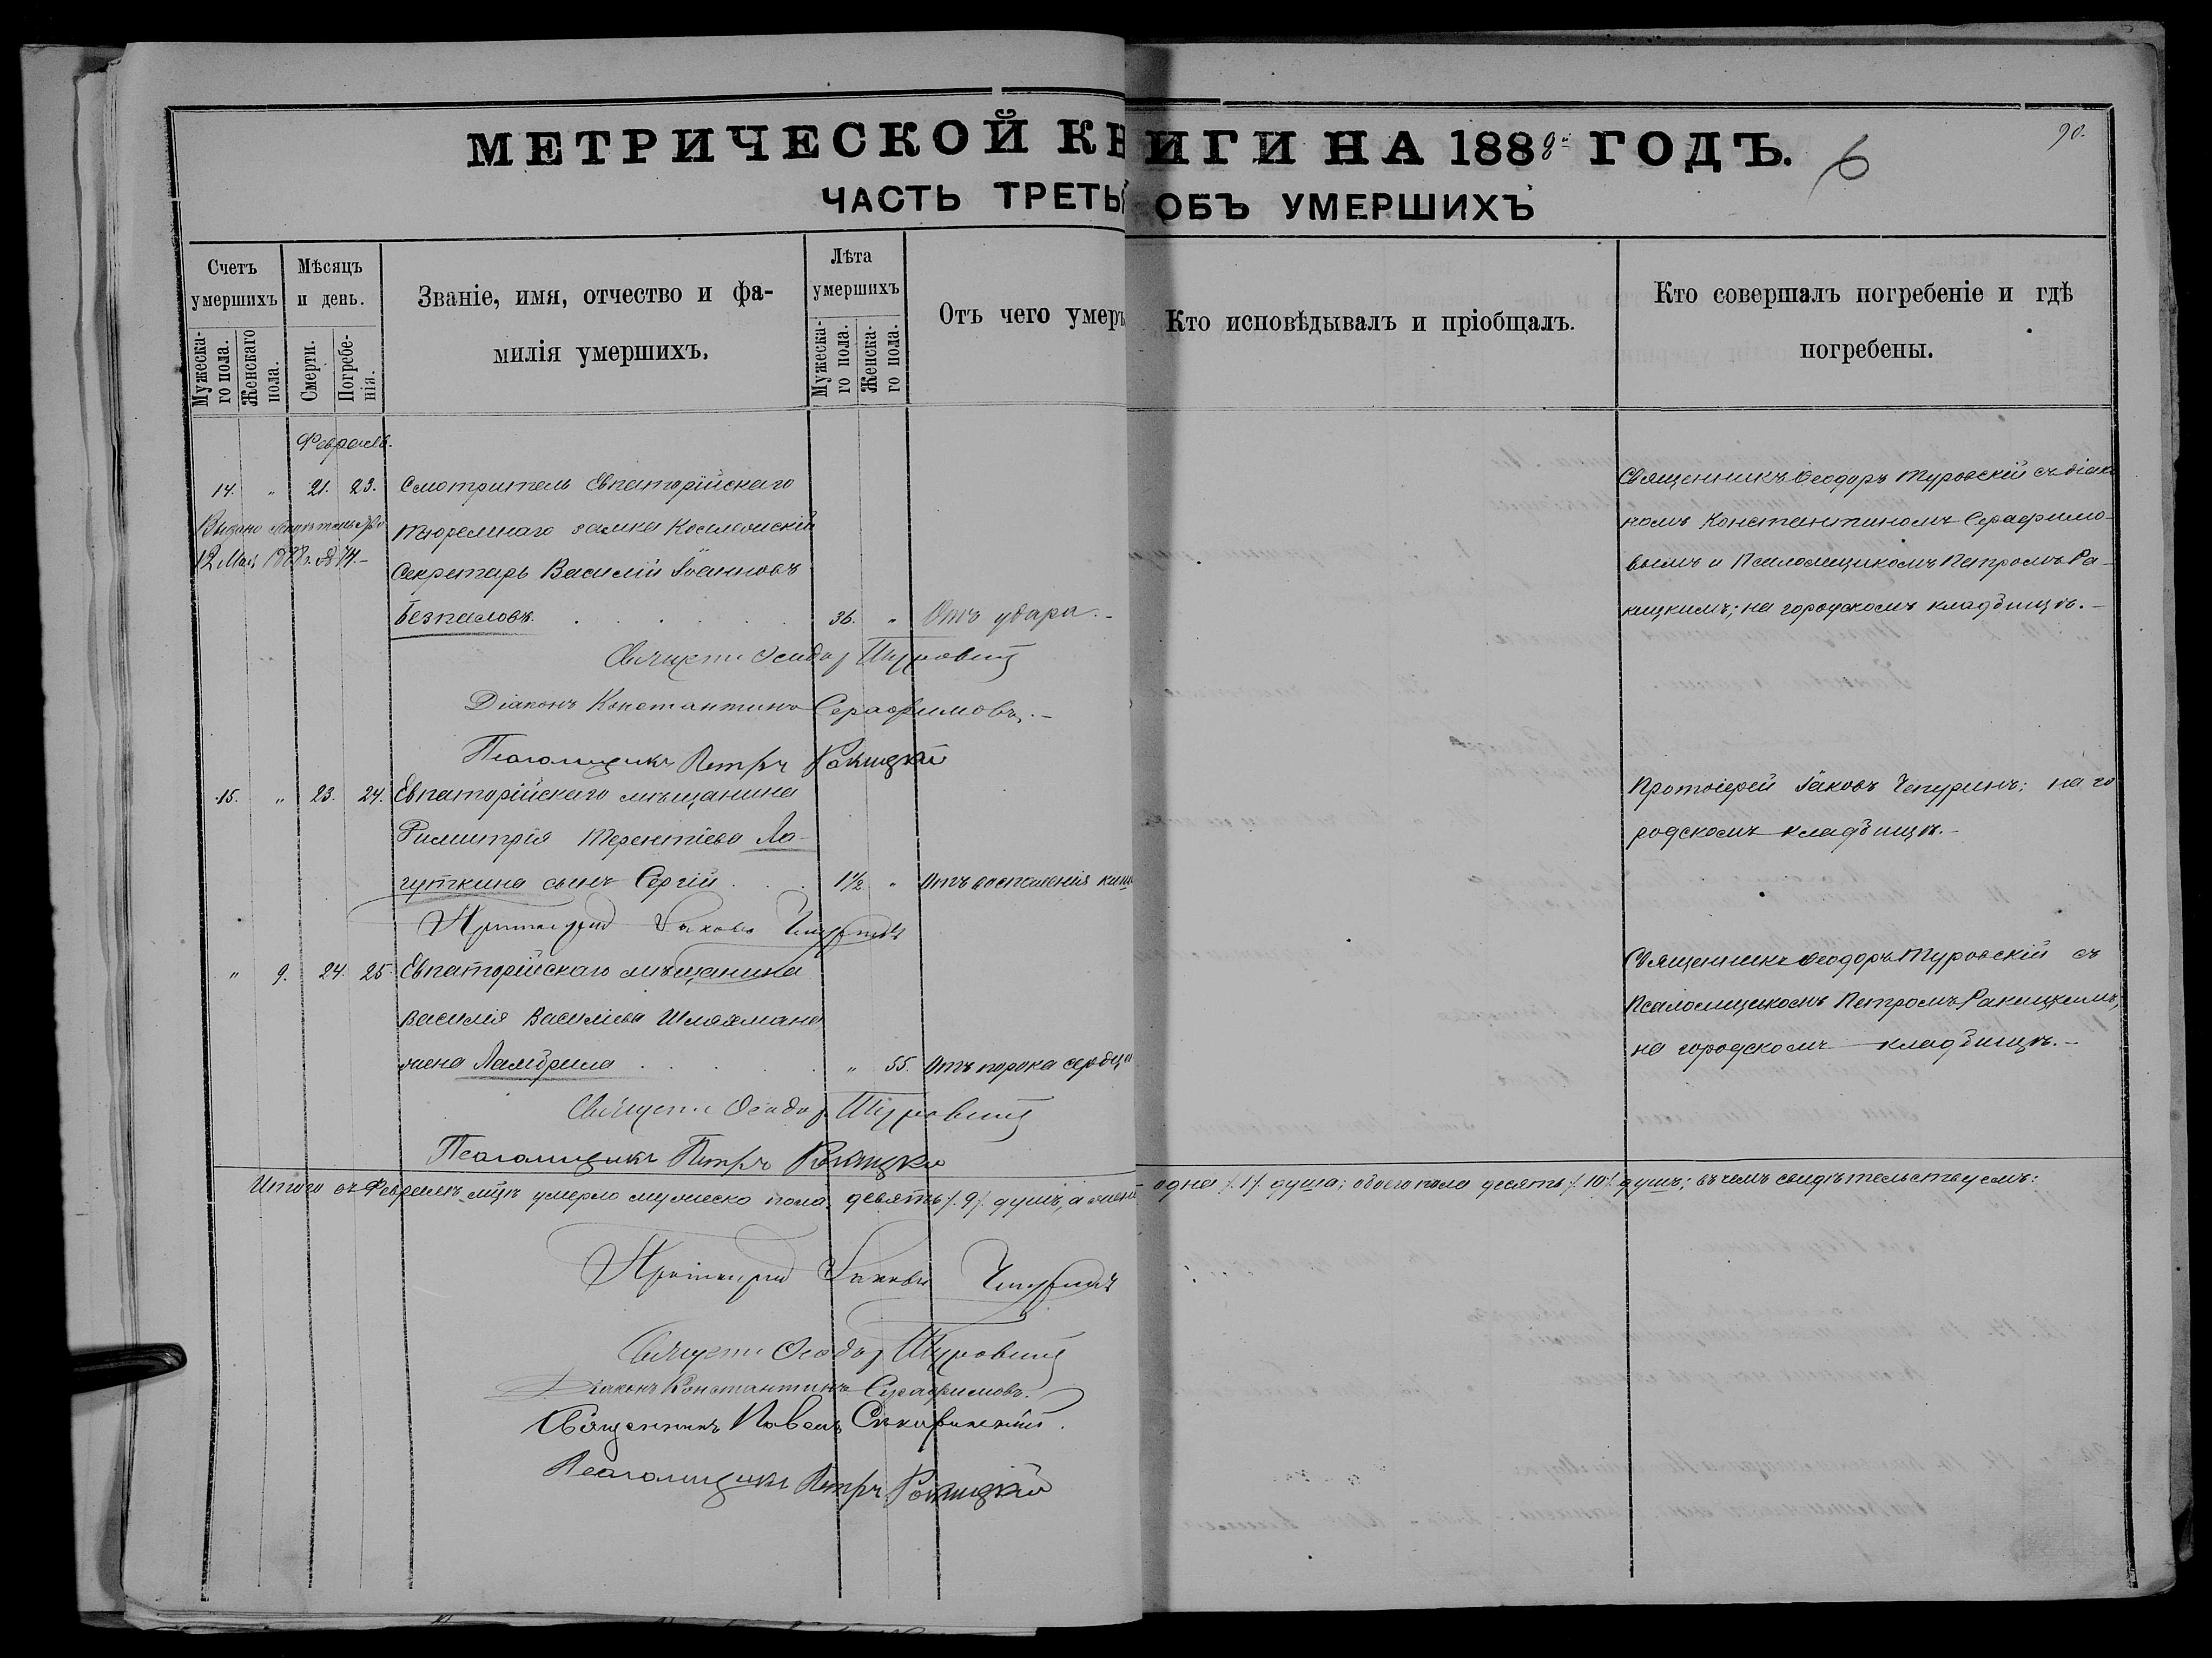 МЕТРИЧЕСКОЙ КНИГИ НА 1888й ГОДЪ.
6
90.
ЧАСТЬ ТРЕТЬ ОБЪ УМЕРШИХЪ
Счетъ умершихъ
Мужеска-го пола.
Женскаго пола.
Мѣсяцъ и день.
Смерти.
Погребе-нія.
Званіе, имя, отчество и фа-
милія умершихъ.
Лѣта умершихъ
Мужеска-го пола.
Женска-го пола.
Отъ чего умеръ
Кто исповѣдывалъ и пріобщалъ.
Кто совершалъ погребеніе и гдѣ
погребены.
Февраль.
14. " 21. 23. Смотритель Евпаторійскаго
Выдано
тюремнаго замка Коллежскій
12 Мая 1888 г. № 74.-
Секретарь Василій Іоанновъ
Безпаловъ. 36. " Отъ удара.-
Священникъ Ѳеодоръ Туровскій съ діако
номъ Константиномъ Серафимо-
вымъ и Псаломщикомъ Петромъ Ра-
кицкимъ; на городскомъ кладбищѣ.-
Священ. Ѳеодор Туровскій
Діаконъ Константинъ Серафимовъ.-
Псаломщикъ Петръ Ракицкій
15. " 23. 24. Евпаторійскаго мѣщанина
Димитрія Терентіева Ло-
гуткина сынъ Сергій 1½ " Отъ воспаленія киш
Протоіерей Іаковъ Чепуринъ; на го
родскомъ кладбищѣ.-
Протоіерей Іаковъ Чепуринъ
" 9. 24. 25. Евпаторійскаго мѣщанина
Василія Василіева Шляхмана
жена Ламбрина " 55. Отъ порока сердца
Священникъ Ѳеодоръ Туровскій съ
Псаломщикомъ Петромъ Ракицкимъ,
на городскомъ кладбищѣ.-
Священ. Ѳеодор Туровскій
Псаломщикъ Петръ Ракицкій
Итого въ Февралѣ м̃цѣ умерло мужеска пола девять /.9/. душъ, а женс одна /.1/. душа; обоего пола десять /.10/. душъ; въ чемъ свидѣтельствуемъ:
Протоіерей Іаковъ Чепуринъ
Священ. Ѳеодор Туровскій
Діаконъ Константинъ Серафимовъ.
Священникъ Павелъ
Псаломщикъ Петръ Ракицкій